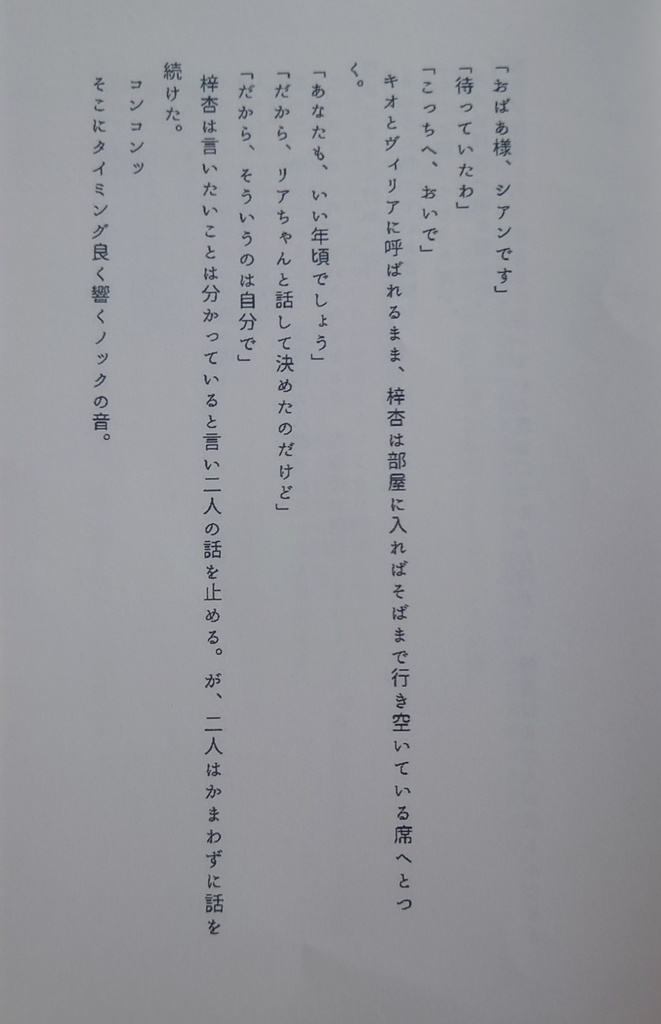 「おばあ様、シアンです」
「待っていたわ」
「こっちへ、おいで」
キオとヴィリアに呼ばれるまま、梓杏は部屋に入ればそばまで行き空いている席へとつ
く。
「あなたも、いい年頃でしょう」
「だから、リアちゃんと話して決めたのだけど」
「だから、そういうのは自分で」
梓杏は言いたいことは分かっていると言い二人の話を止める。が、二人はかまわずに話を
続けた。
コンコンッ
そこにタイミング良く響くノックの音。